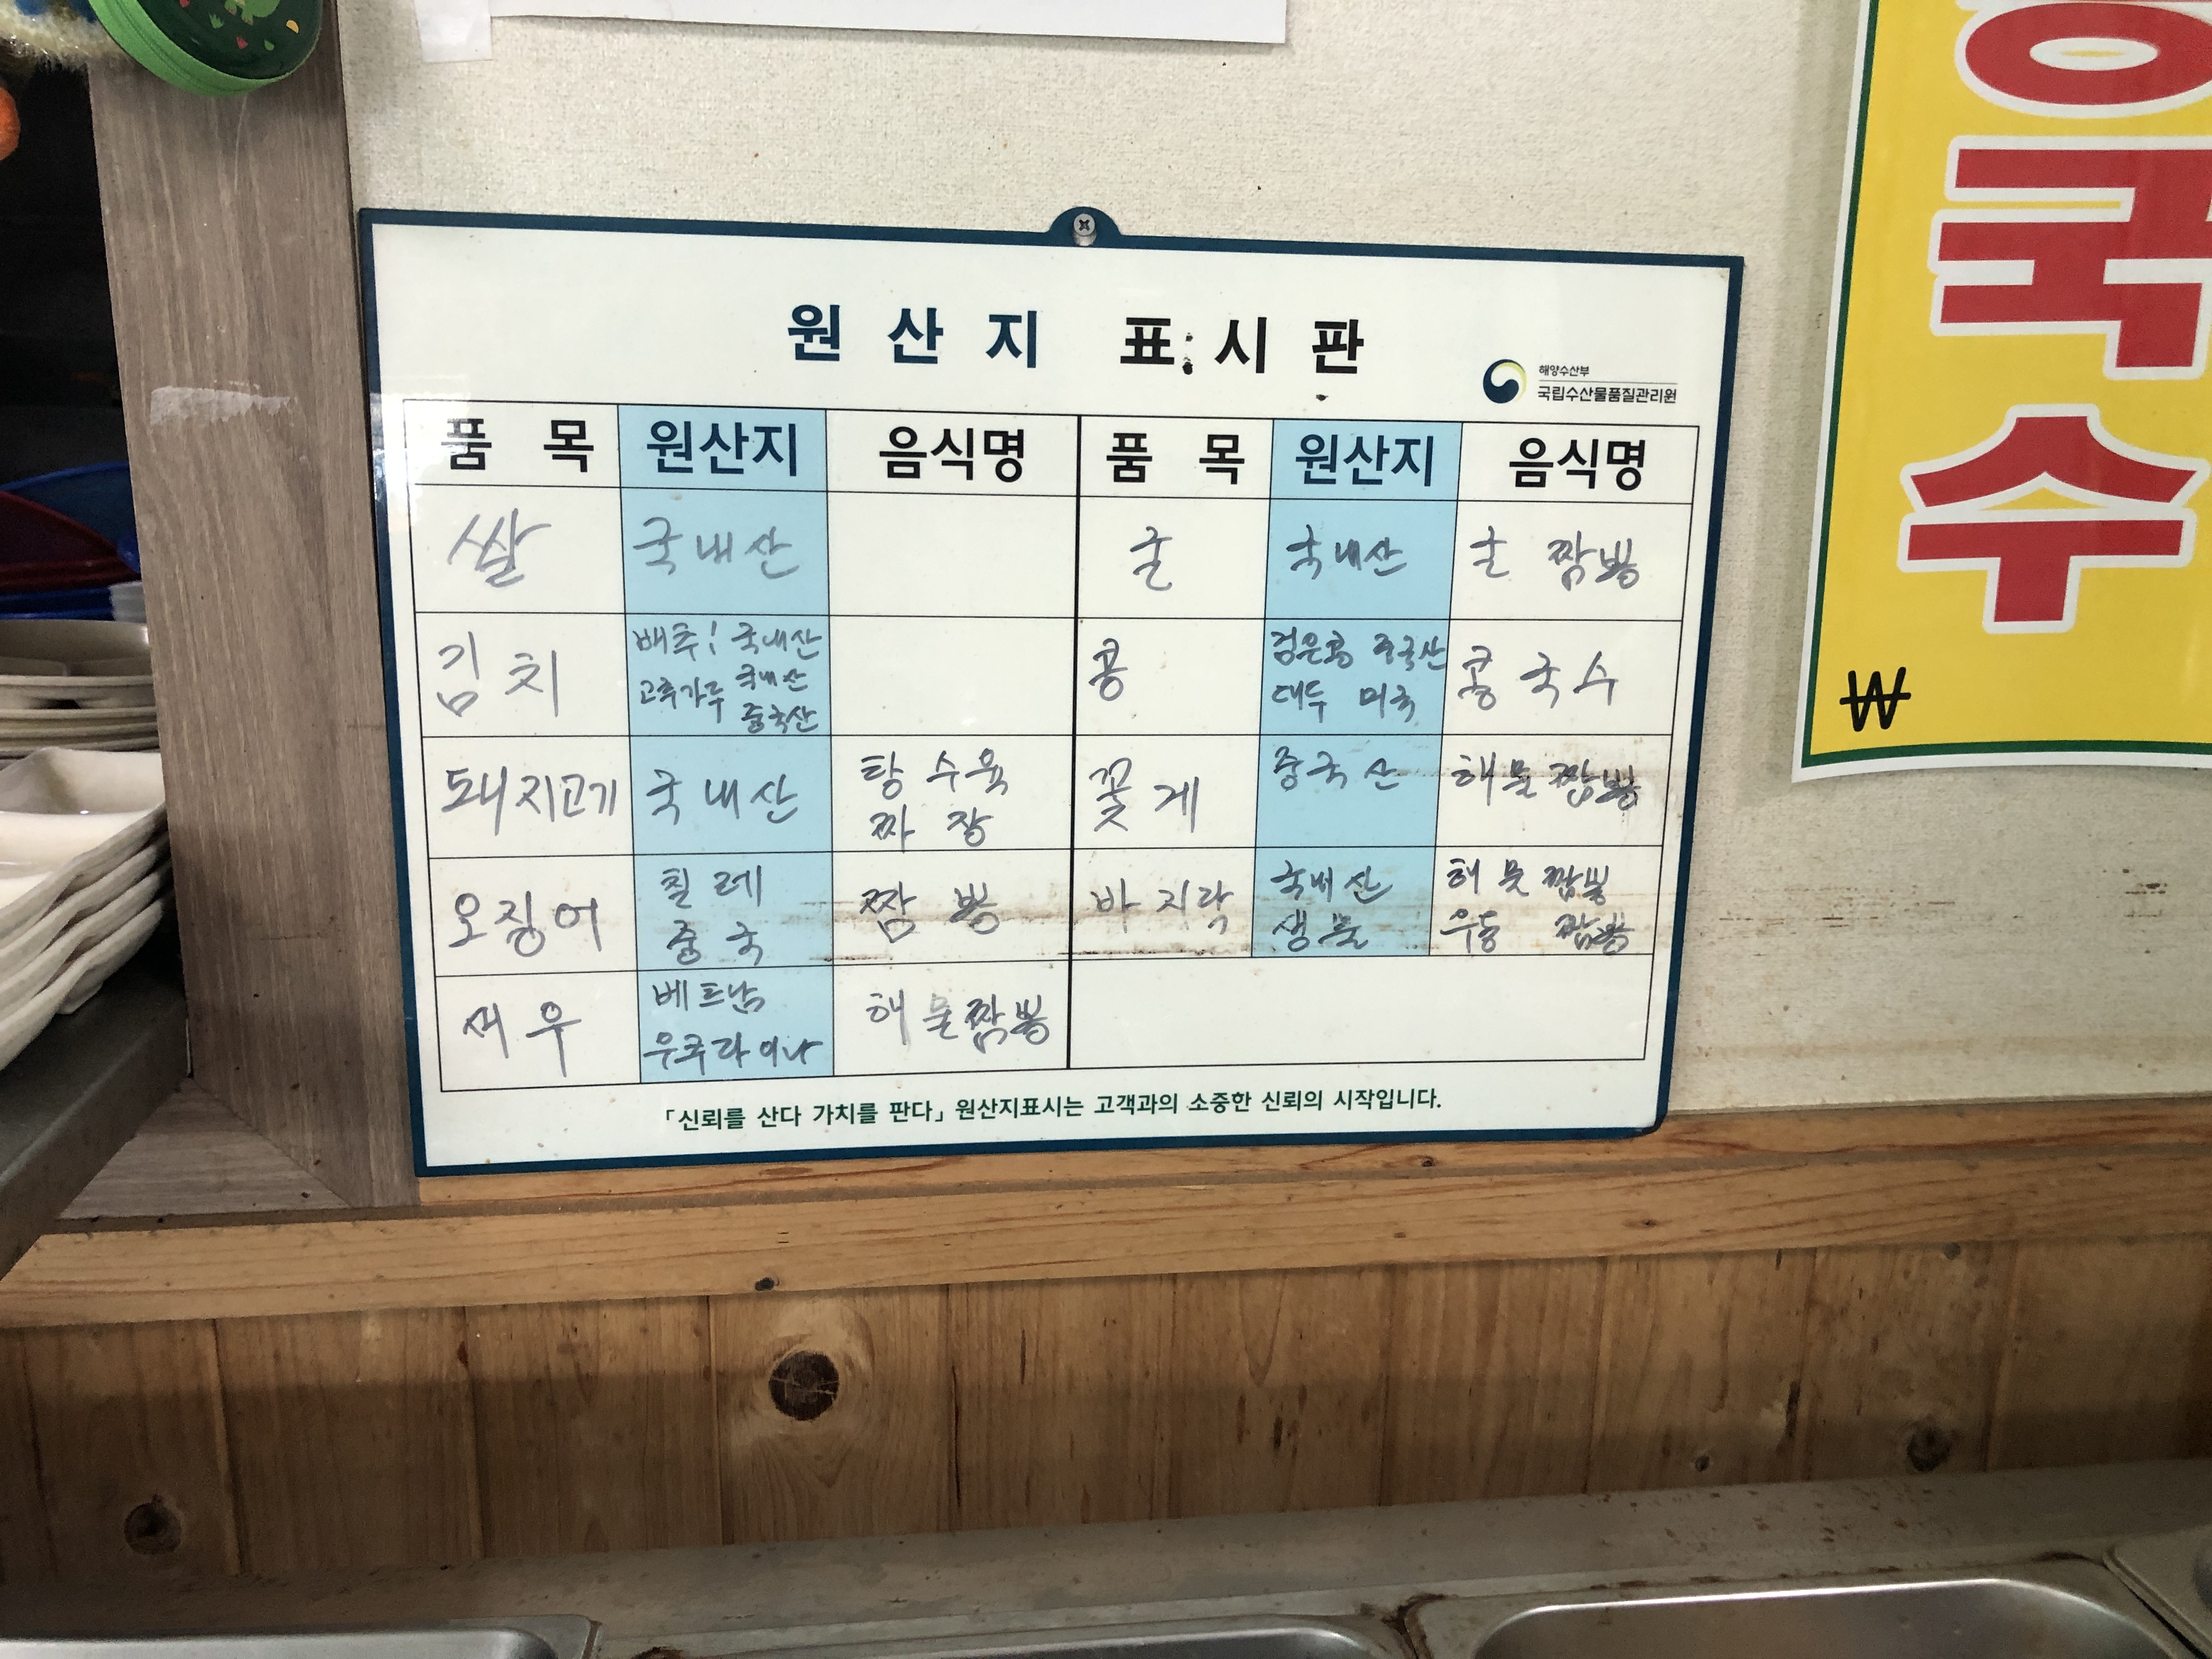 원산지 표시판
해양수산부
국립수산물품질관리원
품목 원산지 음식명 품목 원산지 음식명
쌀 국내산 굴 국내산 굴 짬뽕
김치 배추! 국내산 고추가루 국내산 중국산 콩 검은콩 중국산 대두 미국 콩국수
돼지고기 국내산 탕수육 짜장 꽃게 중국산 해물짬뽕
오징어 칠레 중국 짬뽕 바지락 국내산 생물 해물짬뽕 우동 짬뽕
새우 베트남 우크라이나 해물짬뽕
「신뢰를 산다 가치를 판다」 원산지표시는 고객과의 소중한 신뢰의 시작입니다.
국수
₩